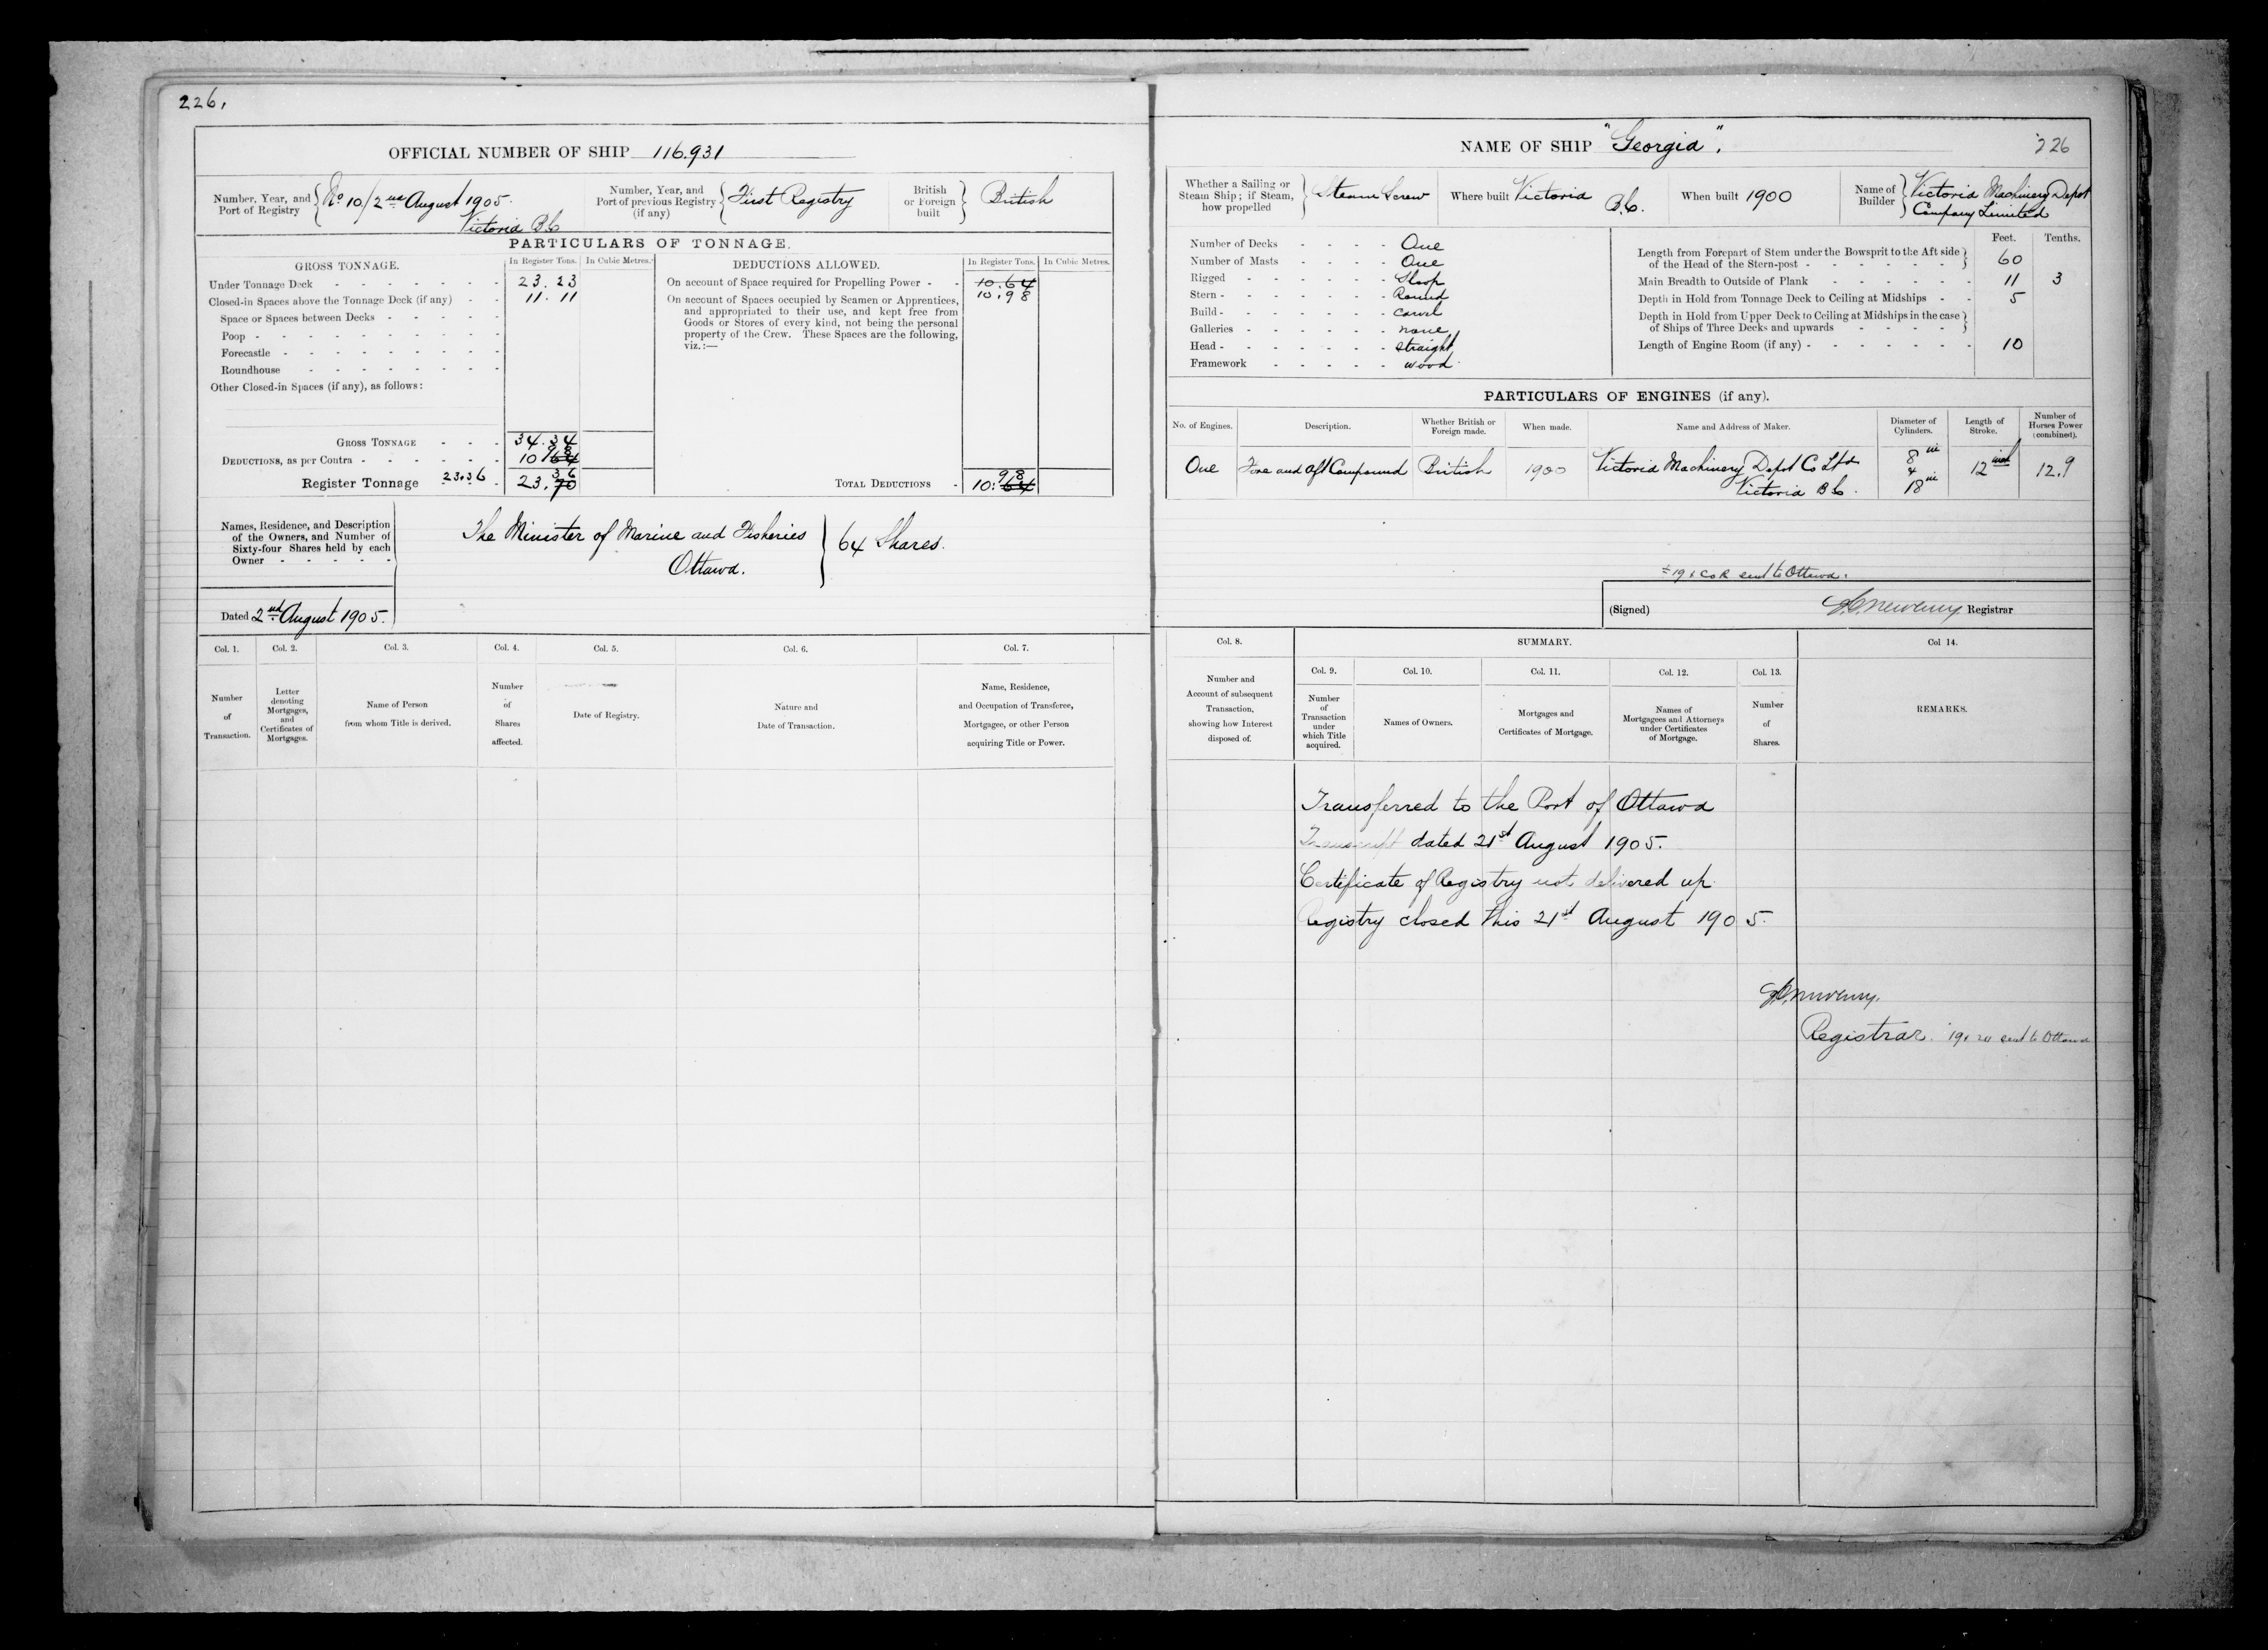 226.
OFFICIAL NUMBER OF SHIP 116.931
Number, Year, and Port of Registry
No 10/2nd August 1905.
Victoria B.C
Number, Year, and Port of previous Registry (if any)
First Registry
British or Foreign built
British
PARTICULARS OF TONNAGE.
GROSS TONNAGE.
In Register Tons. In Cubic Metres.
Under Tonnage Deck 23.23
Closed-in Spaces above the Tonnage Deck (if any) 11.11
Space or Spaces between Decks
Poop
Forecastle
Roundhouse
Other Closed-in Spaces (if any), as follows:
GROSS TONNAGE 34.34
DEDUCTIONS, as per Contra 10 64 98
Register Tonnage 23.36 23.70 36
DEDUCTIONS ALLOWED.
In Register Tons. In Cubic Metres.
On account of Space required for Propelling Power 10.64
10.98
On account of Spaces occupied by Seamen or Apprentices,
and appropriated to their use, and kept free from
Goods or Stores of every kind, not being the personal
property of the Crew. These Spaces are the following,
viz.:—
TOTAL DEDUCTIONS 10.64 98
Names, Residence, and Description
of the Owners, and Number of
Sixty-four Shares held by each
Owner
The Minister of Marine and Fisheries
Ottawa.
64 Shares.
Dated 2nd August 1905.
Col. 1. Col. 2. Col. 3. Col. 4. Col. 5. Col. 6. Col. 7.
Number of Transaction.
Letter denoting Mortgages, and Certificates of Mortgages.
Name of Person from whom Title is derived.
Number of Shares affected.
Date of Registry.
Nature and Date of Transaction.
Name, Residence, and Occupation of Transferee, Mortgagee, or other Person acquiring Title or Power.
NAME OF SHIP "Georgia".
226
Whether a Sailing or Steam Ship; if Steam, how propelled
Steam Screw
Where built Victoria B.C.
When built 1900
Name of Builder
Victoria Machinery Depot
Company Limited
Number of Decks One
Number of Masts One
Rigged Sloop
Stern Round
Build Carvel
Galleries none
Head straight
Framework wood
Feet. Tenths.
Length from Forepart of Stem under the Bowsprit to the Aft side of the Head of the Stern-post 60
Main Breadth to Outside of Plank 11 3
Depth in Hold from Tonnage Deck to Ceiling at Midships 5
Depth in Hold from Upper Deck to Ceiling at Midships in the case of Ships of Three Decks and upwards
Length of Engine Room (if any) 10
PARTICULARS OF ENGINES (if any).
No. of Engines. Description. Whether British or Foreign made. When made. Name and Address of Maker. Diameter of Cylinders. Length of Stroke. Number of Horses Power (combined).
One Fore and Aft Compound British 1900 Victoria Machinery Depot Co Ltd 8 in & 18 in 12 inch 12.9
Victoria B.C.
19 & CoR sent to Ottawa.
(Signed) Registrar
Col. 8. SUMMARY. Col 14.
Col. 9. Col. 10. Col. 11. Col. 12. Col. 13.
Number and Account of subsequent Transaction, showing how Interest disposed of.
Number of Transaction under which Title acquired.
Names of Owners.
Mortgages and Certificates of Mortgage.
Names of Mortgagees and Attorneys under Certificates of Mortgage.
Number of Shares.
REMARKS.
Transferred to the Port of Ottawa
Transcript dated 21st August 1905.
Certificate of Registry not delivered up
Registry closed this 21st August 1905.
Registrar. sent to Ottawa